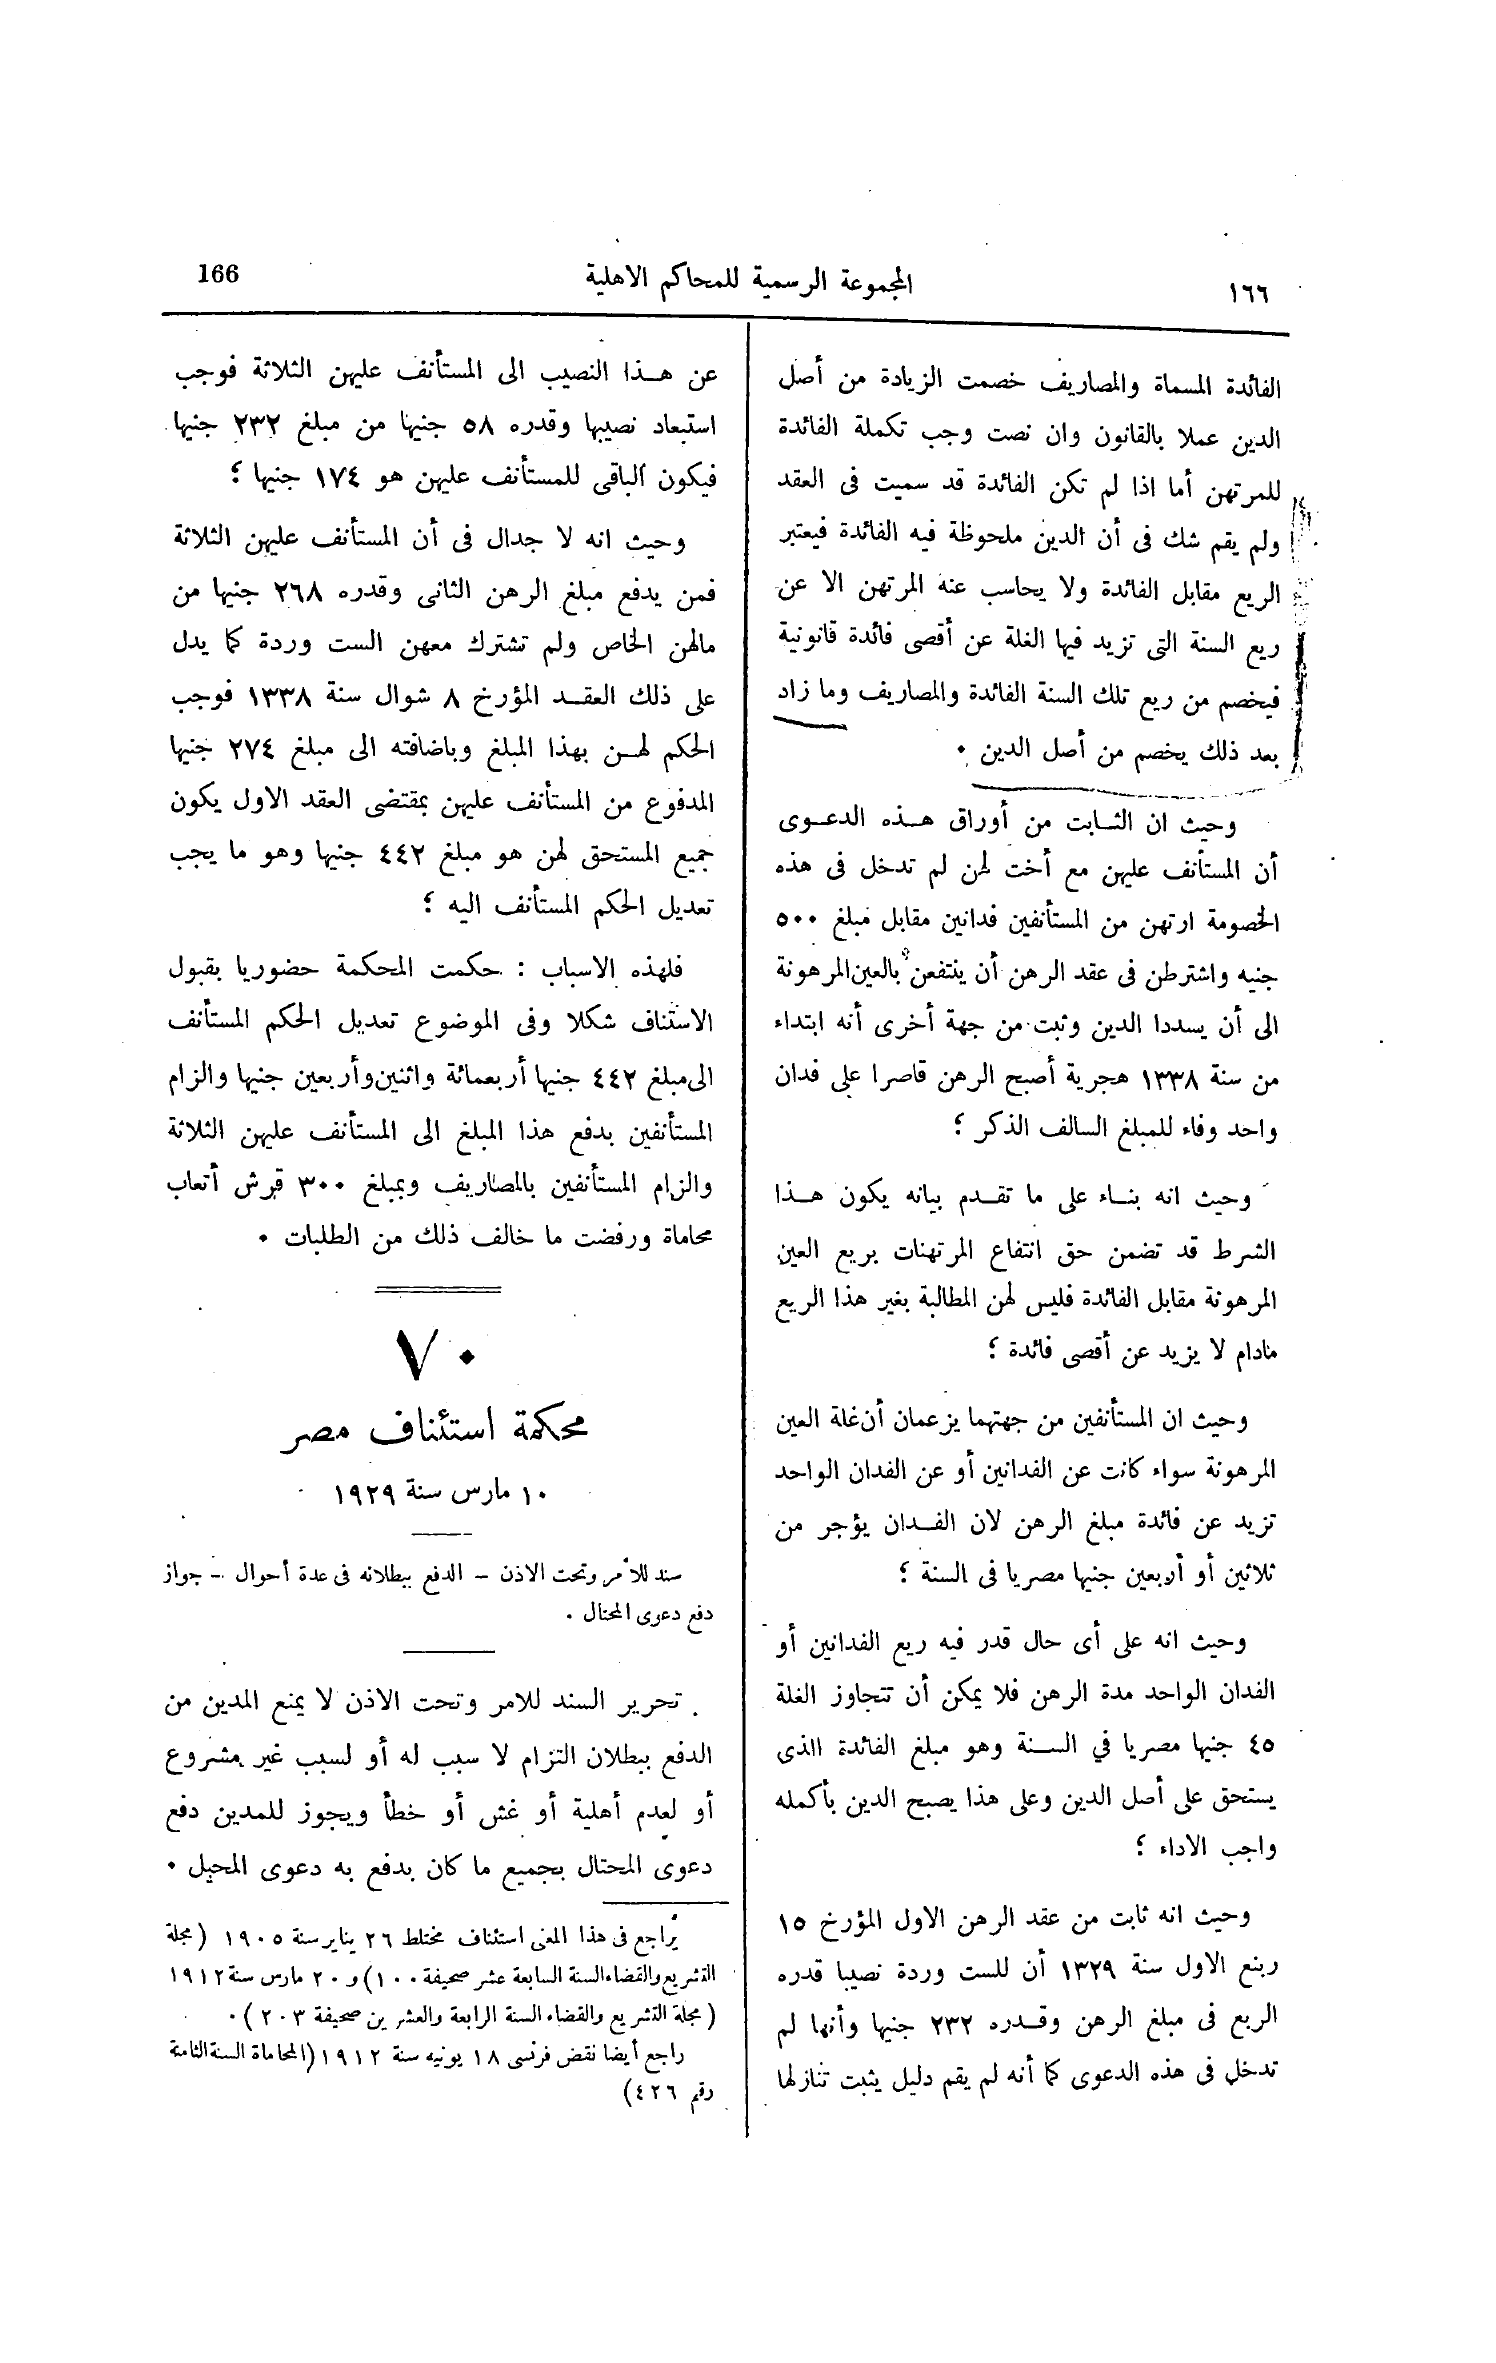 ١٦٦
المجموعة الرسمية للمحاكم الاهلية
166
الفائدة المسماة والمصاريف خصمت الزيادة من أصل
الدين عملا بالقانون وان نصت وجب تكملة الفائدة
للمرتهن أما اذا لم تكن الفائدة قد سميت فى العقد
ولم يقم شك فى أن الدين ملحوظة فيه الفائدة فيعتبر
الريع مقابل الفائدة ولا يحاسب عنه المرتهن الا عن
ريع السنة التى تزيد فيها الغلة عن أقصى فائدة قانونية
فيخصم من ريع تلك السنة الفائدة والمصاريف وما زاد
بعد ذلك يخصم من أصل الدين .
وحيث ان الثابت من أوراق هذه الدعوى
أن المستأنف عليهن مع أخت لهن لم تدخل فى هذه
الخصومة ارتهن من المستأنفين فدانين مقابل مبلغ ٥٠٠
جنيه واشترطن فى عقد الرهن أن ينتفعن بالعين المرهونة
الى أن يسددا الدين وثبت من جهة أخرى أنه ابتداء
من سنة ١٣٣٨ هجرية أصبح الرهن قاصرا على فدان
واحد وفاء للمبلغ السالف الذكر ؛
وحيث انه بناء على ما تقدم بيانه يكون هذا
الشرط قد تضمن حق انتفاع المرتهنات بريع العين
المرهونة مقابل الفائدة فليس لهن المطالبة بغير هذا الريع
مادام لا يزيد عن أقصى فائدة ؛
وحيث ان المستأنفين من جهتهما يزعمان أن غلة العين
المرهونة سواء كانت عن الفدانين أو عن الفدان الواحد
تزيد عن فائدة مبلغ الرهن لان الفدان يؤجر من
ثلاثين أو أربعين جنيها مصريا فى السنة ؛
وحيث انه على أى حال قدر فيه ريع الفدانين أو
الفدان الواحد مدة الرهن فلا يمكن أن تتجاوز الغلة
٤٥ جنيها مصريا في السنة وهو مبلغ الفائدة الذى
يستحق على أصل الدين وعلى هذا يصبح الدين بأكمله
واجب الاداء ؛
وحيث انه ثابت من عقد الرهن الاول المؤرخ ١٥
ربيع الاول سنة ١٣٢٩ أن للست وردة نصيبا قدره
الربع فى مبلغ الرهن وقدره ٢٣٢ جنيها وأنها لم
تدخل فى هذه الدعوى كما أنه لم يقم دليل يثبت تنازلها
عن هذا النصيب الى المستأنف عليهن الثلاثة فوجب
استبعاد نصيبها وقدره ٥٨ جنيها من مبلغ ٢٣٢ جنيها
فيكون الباقى للمستأنف عليهن هو ١٧٤ جنيها ؛
وحيث انه لا جدال فى أن المستأنف عليهن الثلاثة
فمن يدفع مبلغ الرهن الثانى وقدره ٢٦٨ جنيها من
مالهن الخاص ولم تشترك معهن الست وردة كما يدل
على ذلك العقد المؤرخ ٨ شوال سنة ١٣٣٨ فوجب
الحكم لهن بهذا المبلغ وباضافته الى مبلغ ٢٧٤ جنيها
المدفوع من المستأنف عليهن بمقتضى العقد الاول يكون
جميع المستحق لهن هو مبلغ ٤٤٢ جنيها وهو ما يجب
تعديل الحكم المستأنف اليه ؛
فلهذه الاسباب : حكمت المحكمة حضوريا بقبول
الاستئناف شكلا وفى الموضوع تعديل الحكم المستأنف
الى مبلغ ٤٤٢ جنيها أربعمائة واثنين وأربعين جنيها والزام
المستأنفين بدفع هذا المبلغ الى المستأنف عليهن الثلاثة
والزام المستأنفين بالمصاريف وبمبلغ ٣٠٠ قرش أتعاب
محاماة ورفضت ما خالف ذلك من الطلبات .
٧٠
محكمة استئناف مصر
١٠ مارس سنة ١٩٢٩
سند للأمر وتحت الاذن – الدفع ببطلانه فى عدة أحوال – جواز
دفع دعوى المحتال .
تحرير السند للامر وتحت الاذن لا يمنع المدين من
الدفع ببطلان التزام لا سبب له أو لسبب غير مشروع
أو لعدم أهلية أو غش أو خطأ ويجوز للمدين دفع
دعوى المحتال بجميع ما كان يدفع به دعوى المحيل .
يراجع فى هذا المعنى استئناف مختلط ٢٦ يناير سنة ١٩٠٥ (مجلة
التشريع والقضاء السنة السابعة عشر صحيفة ١٠٠) و ٢٠ مارس سنة ١٩١٢
(مجلة التشريع والقضاء السنة الرابعة والعشرين صحيفة ٢٠٣) .
راجع أيضا نقض فرنسى ١٨ يونيه سنة ١٩١٢ (المحاماة السنة الثامنة
رقم ٤٢٦)